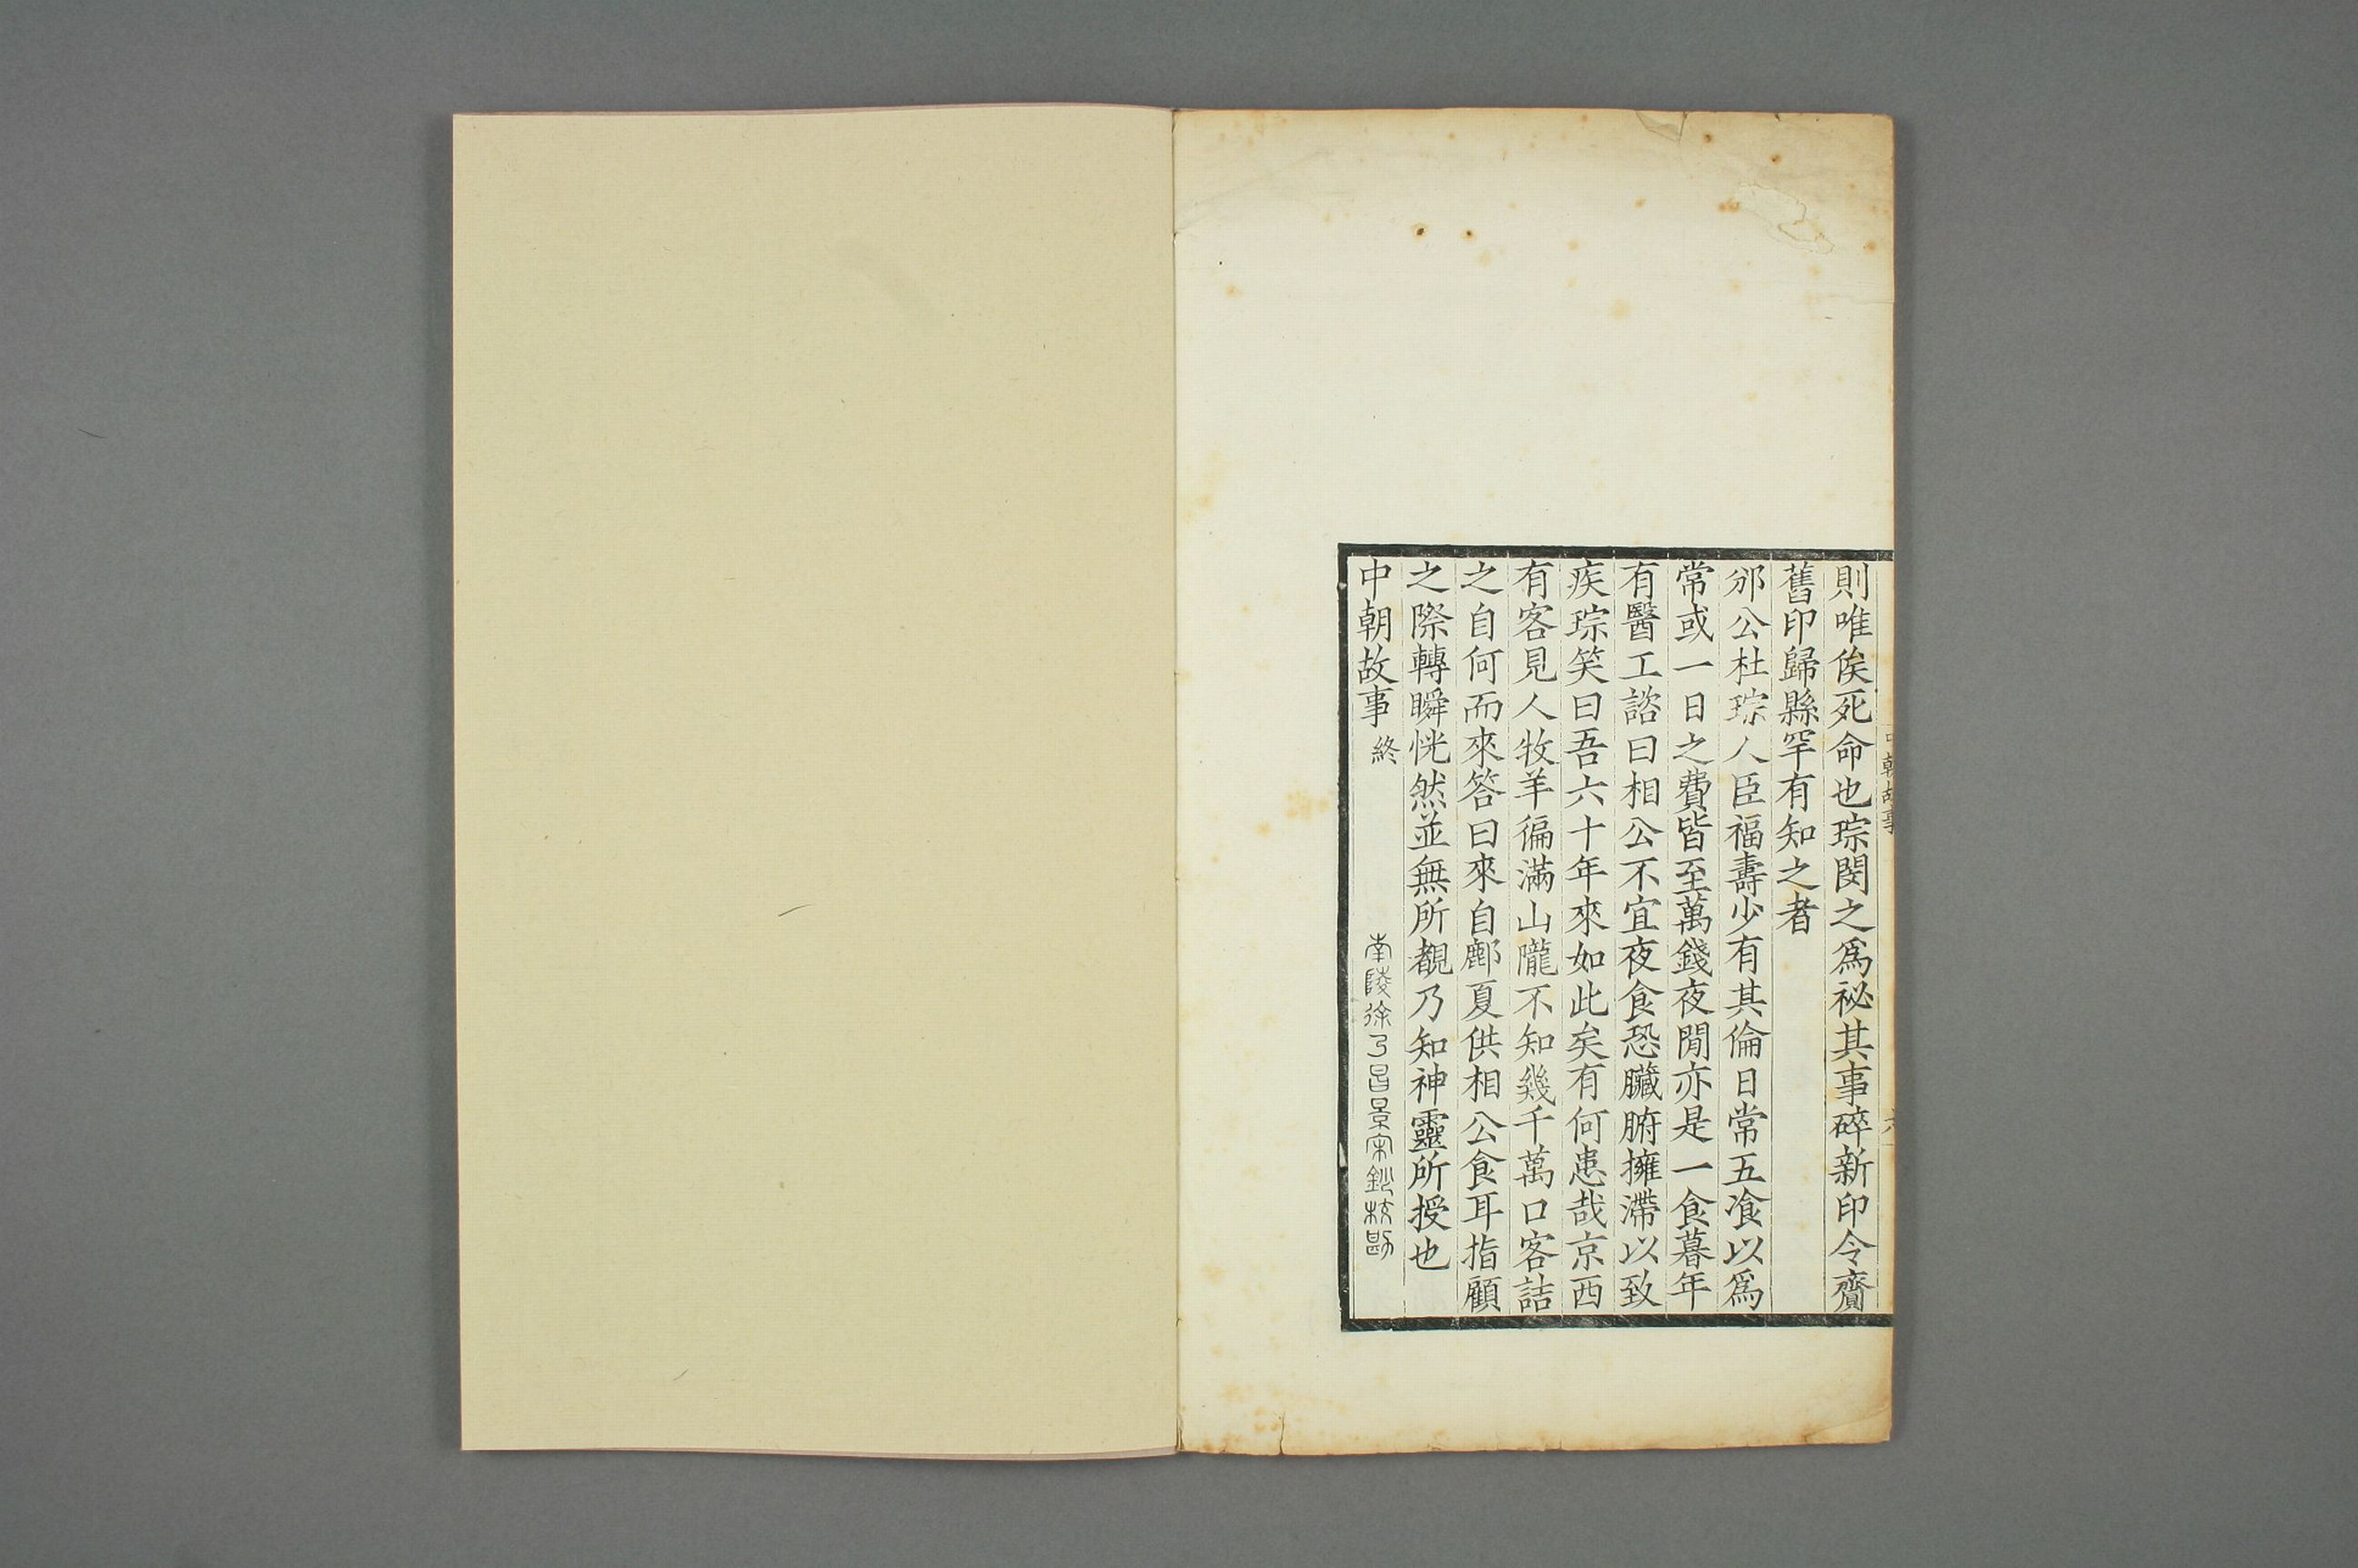 則唯俟死命也琮閔之爲祕其事碎新印令齎
舊印歸縣罕有知之者
邠公杜琮人臣福壽少有其倫日常五飡以爲
常或一日之費皆至萬錢夜夜閒亦是一食暮年
有醫工諮曰相公不宜夜食恐臟腑擁滯以致
疾琮笑曰吾六十年來如此矣有何患哉京西
有客見人牧羊徧滿山隴不知幾千萬口客詰
之自何而來答曰來自鄜夏供相公食耳指顧
之際轉瞬恍然並無所覩乃知神靈所授也
中朝故事 終
南陵徐乃昌景宋鈔校勘
中朝故事
六